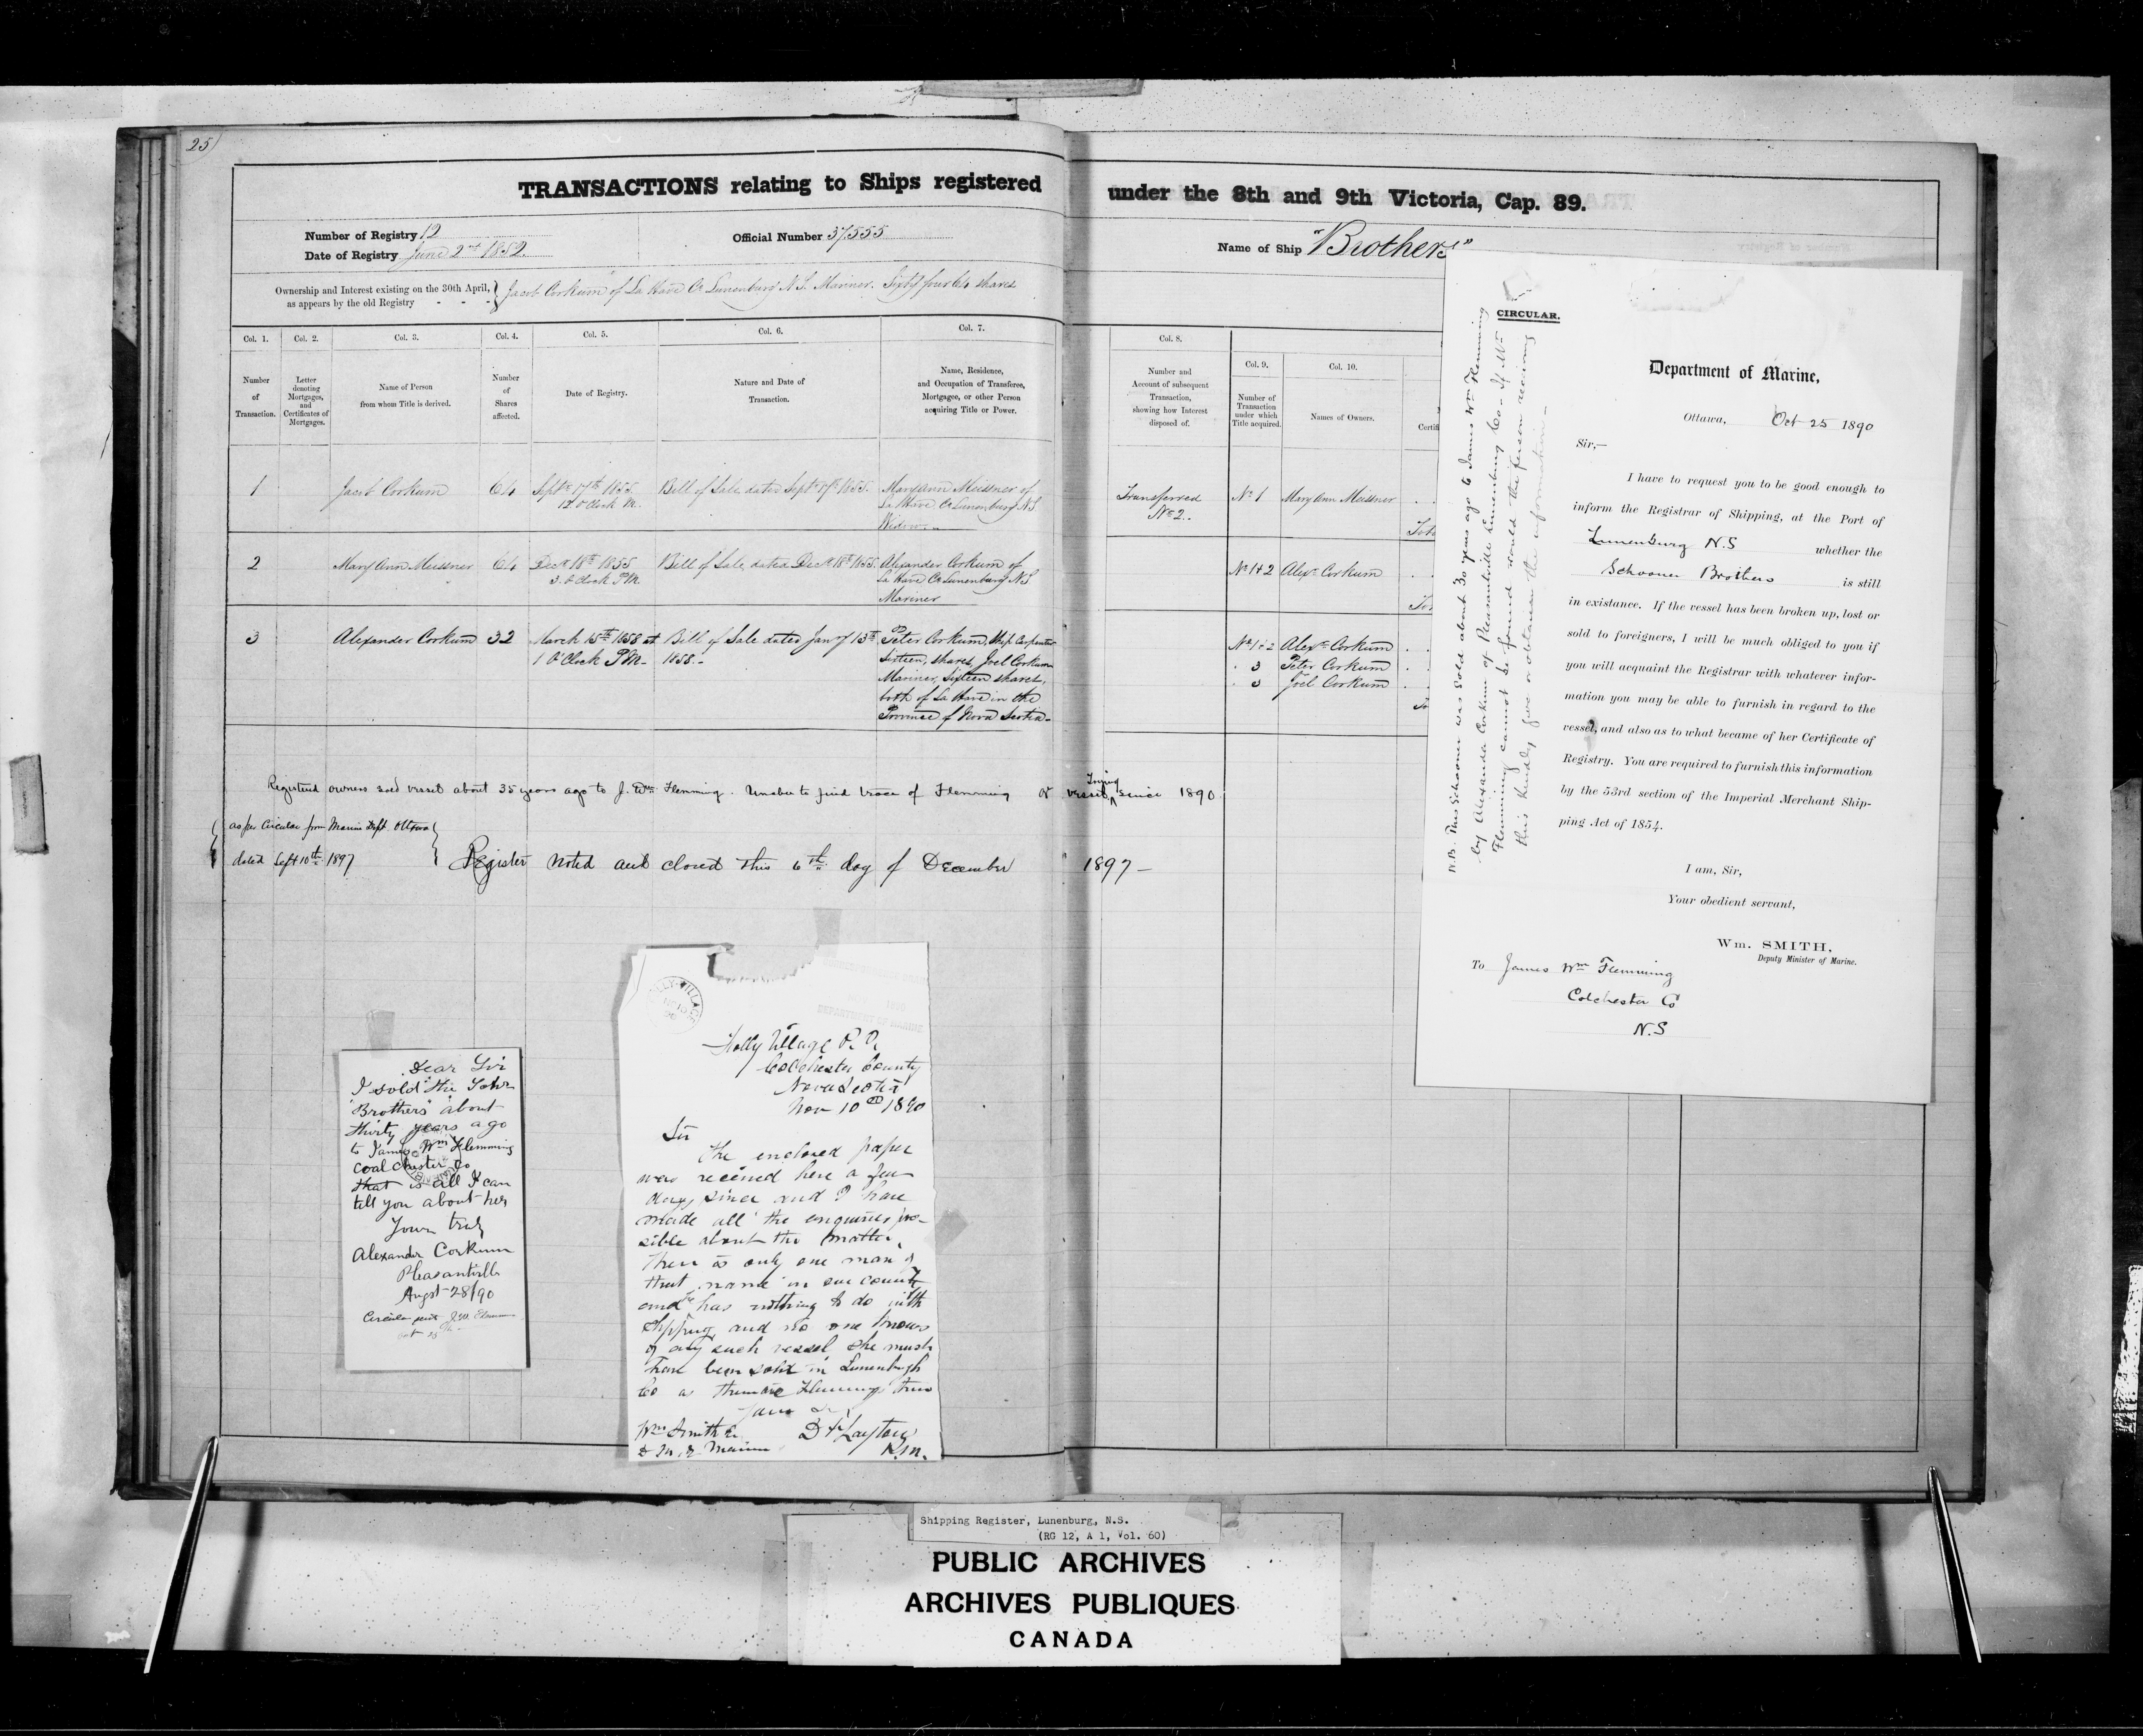 25
TRANSACTIONS relating to Ships registered under the 8th and 9th Victoria, Cap. 89.
Number of Registry 12
Date of Registry June 2nd 1852.
Official Number 37,555
Name of Ship "Brothers"
Ownership and Interest existing on the 30th April, as appears by the old Registry - - - } Jacob Corkum of La Have Co Lunenburg N.S. Mariner. Sixty four 64 shares
Col. 1.
Number of Transaction.
Col. 2.
Letter denoting Mortgages, and Certificates of Mortgages.
Col. 3.
Name of Person from whom Title is derived.
Col. 4.
Number of Shares affected.
Col. 5.
Date of Registry.
Col. 6.
Nature and Date of Transaction.
Col. 7.
Name, Residence, and Occupation of Transferee, Mortgagee, or other Person acquiring Title or Power.
Col. 8.
Number and Account of subsequent Transaction, showing how Interest disposed of.
Col. 9.
Number of Transaction under which Title acquired.
Col. 10.
Names of Owners.
Certifi
1 Jacob Corkum 64 Septr 17th 1855. Bill of Sale dated Septr 17th 1855. Mary Ann Meissner of
12 O'Clock M. La Have Co Lunenburg N.S.
Widow
Transferred No 2. No 1 Mary Ann Meissner
2 Mary Ann Meissner 64 Decr 18th 1855 Bill of Sale, dated Decr 18th 1855. Alexander Corkum of
3. O'Clock P.M. La Have Co Lunenburg N.S.
Mariner
No 1&2 Alexr Corkum
3 Alexander Corkum 32 March 15th 1858 at Bill of Sale dated Jany 13th Peter Corkum, Ship Carpenter
1 O'Clock P.M. 1858. Sixteen, shares, Joel Corkum
Mariner, Sixteen shares,
both of La Have in the
Province of Nova Scotia
No 1&2 Alexr Corkum
" 3 Peter Corkum
" 3 Joel Corkum
Registered owners sold vessel about 35 years ago to J. Wm Flemming. Unable to find trace of Flemming or vessel, Trying since 1890
as per Circular from Marine Dept. Ottawa
dated Sept 10th 1897
Register noted and closed this 6th day of December 1897
CIRCULAR.
Department of Marine,
Ottawa, Oct 25 1890
Sir,—
I have to request you to be good enough to
inform the Registrar of Shipping, at the Port of
Lunenburg N.S whether the
Schooner Brothers is still
in existance. If the vessel has been broken up, lost or
sold to foreigners, I will be much obliged to you if
you will acquaint the Registrar with whatever infor-
mation you may be able to furnish in regard to the
vessel, and also as to what became of her Certificate of
Registry. You are required to furnish this information
by the 53rd section of the Imperial Merchant Ship-
ping Act of 1854.
I am, Sir,
Your obedient servant,
Wm. SMITH,
Deputy Minister of Marine.
To James Wm Flemming
Colchester Co
N.S
N.B. This Schooner was sold about 30 years ago to James Wm Flemming
by Alexander Corkum of Pleasantville Lunenburg Co - If Wm
Flemming cannot be found would the person receiving
this kindly give or obtain the information -
Dear Sir
I sold the Schr
"Brothers" about
thirty years ago
to James Wm Flemming
Coal chester Co
that is all I can
tell you about her
Yours truly
Alexander Corkum
Pleasantville
Augst 28/90
Circular sent J.W. Flemming
Oct 25th
Folly Village P.O.
Colchester County
Nova Scotia
Nov 10th 1890
Sir
The enclosed paper
was received here a few
days since and I have
made all the enquiries pos-
sible about the matter,
there is only one man of
that name in our county
and he has nothing to do with
shipping and no one knows
of any such vessel she must
have been sold in Lunenburgh
Co as there are Flemmings there
Yours
Wm Smith
D.M. of Marine
Layton
P.M.
Shipping Register, Lunenburg, N.S.
(RG 12, A 1, Vol. 60)
PUBLIC ARCHIVES
ARCHIVES PUBLIQUES
CANADA